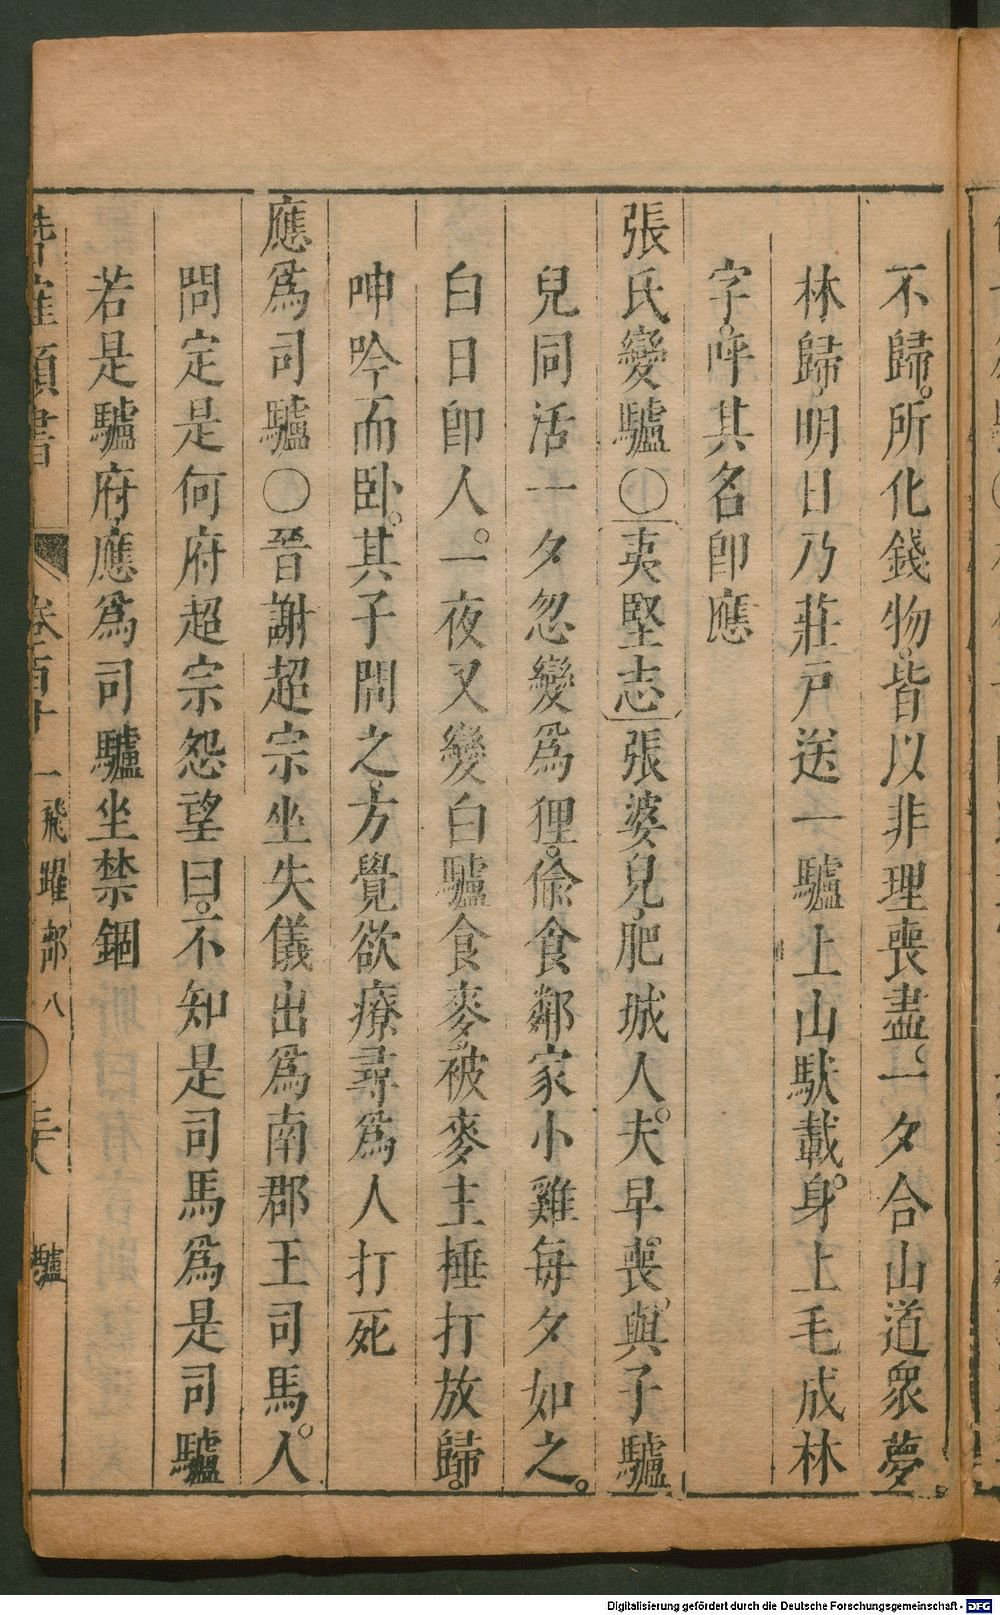 不歸。所化錢物。皆以非理喪盡。一夕合山道衆夢
林歸。明日乃莊戶送一驢上山馱載。身上毛成林
字。呼其名卽應
張氏變驢○夷堅志張婆兒。肥城人。夫早喪。與子驢
兒同活一夕忽變爲狸。偷食鄰家小雞每夕如之。
白日卽人。一夜又變白驢食麥。被麥主捶打放歸。
呻吟而臥。其子問之。方覺欲療尋爲人打死
應爲司驢○晉謝超宗坐失儀出爲南郡王司馬。人
問定是何府超宗怨望曰。不知是司馬爲是司驢
若是驢府。應爲司驢坐禁錮
類書 卷百十一飛躍部八 三十八 驢
Digitalisierung gefördert durch die Deutsche Forschungsgemeinschaft - DFG